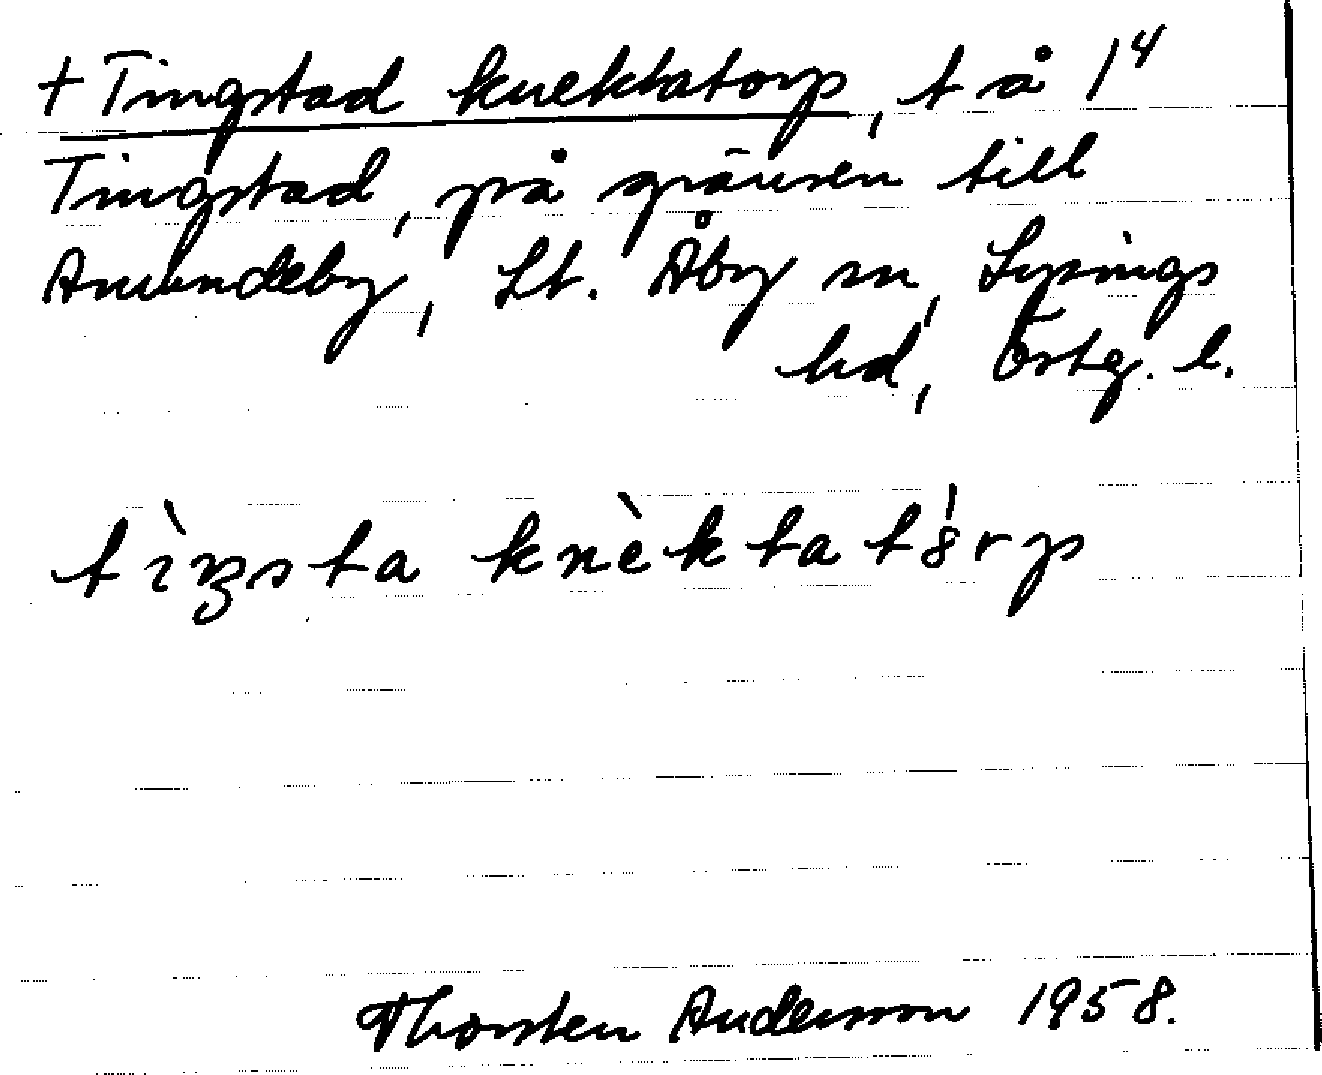 + Tingstad knektatorp, t å 1⁴
Tingstad, på gränsen till
Amundeby, St. Åby sn, Lysings
hd, Östg. l.
tìŋsta knèktatȯ́rp
Thorsten Andersson 1958.